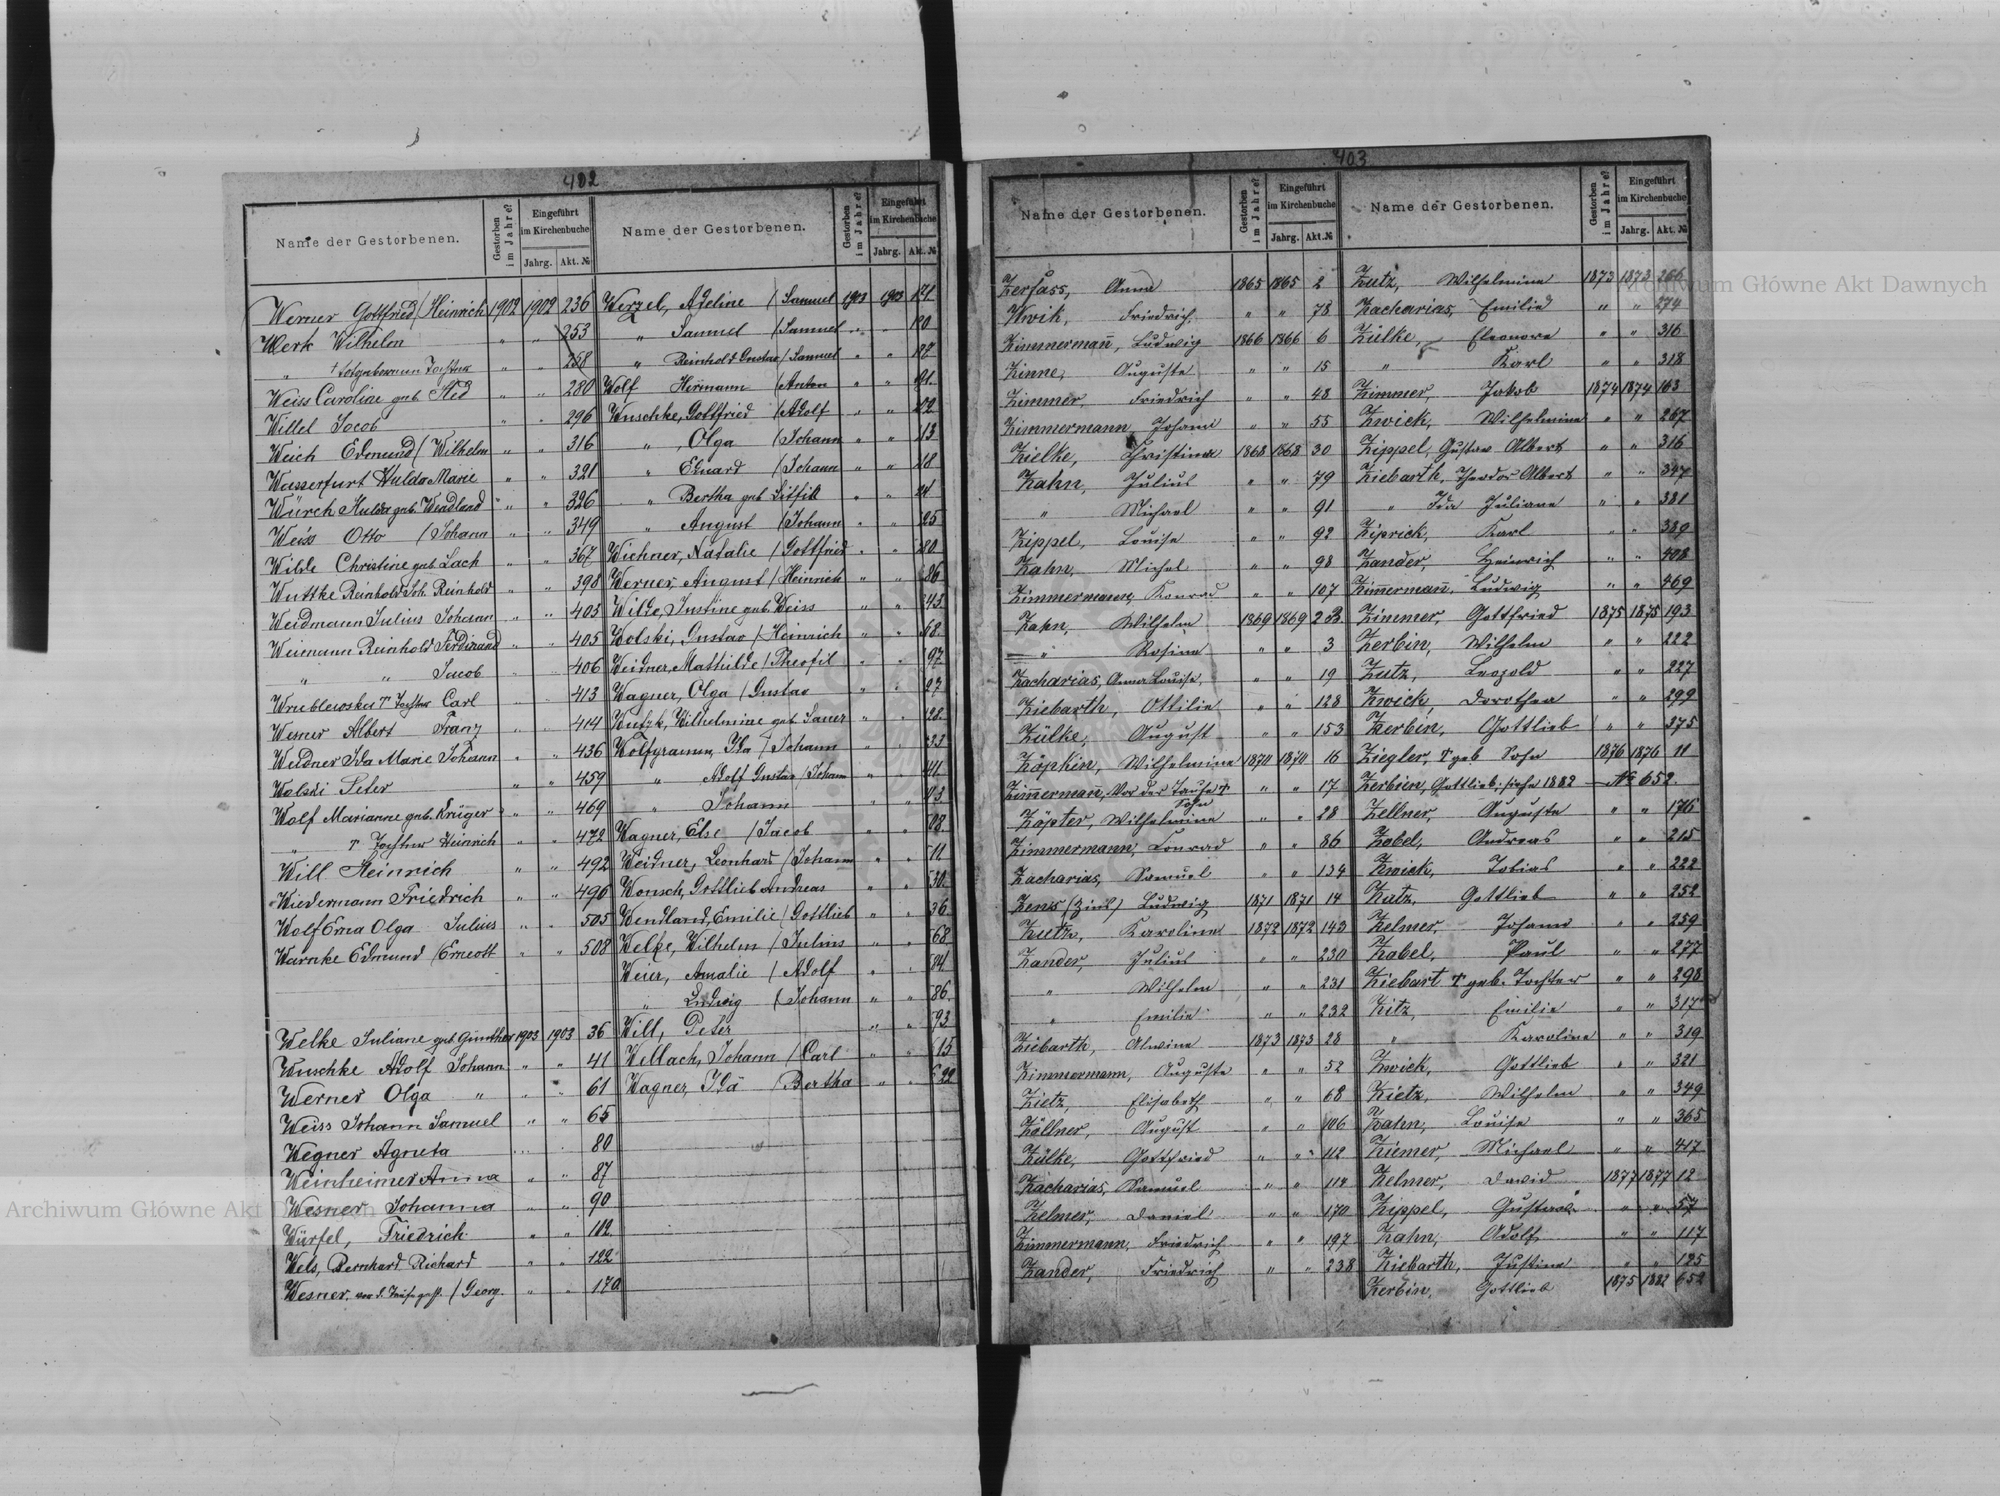 402
Name der Gestorbenen.
Gestorben im Jahre?
Eingeführt im Kirchenbuche
Jahrg.
Akt. №
Name der Gestorbenen.
Gestorben im Jahre?
Eingeführt im Kirchenbuche
Jahrg.
Akt. №
Werner Gottfried / Heinrich 1902 1902 236
Werk Wilhelm " " 253
" " " 258
Weiss Caroline geb. " " 280
Willel Jacob " " 296
Weich Edmund / Wilhelm " " 316
Wasserfurt Hulda Marie " " 321
Würch Hulda geb. Wendland " " 326
Weiss Otto / Johann " " 349
Wilde Christine geb. Lach " " 367
Wuttke Reinhold Joh. Reinhold " " 398
Weidmann Julius Johann " " 403
Weimann Reinhold Ferdinand " " 405
" " Jacob " " 406
Carl " " 413
Werner Albert Franz " " 414
Weidner Ida Marie Johann " " 436
Wolski Peter " " 459
Wolf Marianne geb. Krüger " " 469
" Heinrich " " 472
Will Heinrich " " 492
Wiedermann Friedrich " " 496
Wolf Erna Olga Julius " " 505
Warnke Edmund / Ernest " " 508
Welke Juliane geb. Günther 1903 1903 36
Wuschke Adolf Johann " " 41
Werner Olga " " " 61
Weiss Johann Samuel " " 65
Wegner Agneta " " 80
Weinheimer Anna " " 87
Wesner Johanna " " 90
Würfel, Friedrich " " 112
Wels, Bernhard Richard " " 122
Wesner, / Georg. " " 170
Wenzel, Adeline / Samuel 1903 1903
" Samuel / Samuel " "
" Reinhold Gustav / Samuel " "
Wolf Hermann / Anton " "
Wuschke, Gottfried / Adolf " "
" Olga / Johann " "
" Eduard / Johann " "
" Bertha geb. " "
" August / Johann " "
Wichner, Natalie / Gottfried " "
Werner, August / Heinrich " "
Wilde, Justine geb. Weiss " "
Wolski, Gustav / Heinrich " "
Weidner, Mathilde / Theofil " "
Wagner, Olga / Gustav " "
Wilhelmine geb. Sauer " "
Wolfgramm, Ida / Johann " "
" Adolf Gustav / Johann " "
" Johann " "
Wagner, Else / Jacob " "
Weidner, Leonhard / Johann " "
Wonsch, Gottlieb Andreas " "
Wendland, Emilie / Gottlieb " "
Welke, Wilhelm / Julius " "
Weier, Amalie / Adolf " "
" Ludwig / Johann " "
Will, Peter " "
Wellach, Johann / Carl " "
Wagner, Ida / Bertha " "
403
Name der Gestorbenen.
Gestorben im Jahre?
Eingeführt im Kirchenbuche
Jahrg.
Akt. №
Name der Gestorbenen.
Gestorben im Jahre?
Eingeführt im Kirchenbuche
Jahrg.
Akt. №
Zerfass, Anna 1865 1865 2
Zwik, Friedrich " " 78
Zimmermañ, Ludwig 1866 1866 6
Zinne, Auguste " " 15
Zimmer, Friedrich " " 48
Zimmermann, Johann " " 55
Zielke, Christine 1868 1868 30
Zahn, Julius " " 79
" Michael " " 91
Zippel, Louise " " 92
Zahn, Michel " " 98
Zimmermann, Konrad " " 107
Zahn, Wilhelm 1869 1869
" Rosine " " 3
Zacharias, Anna Louise " " 19
Ziebarth, Ottilie " " 128
Zülke, August " " 153
Zöpkin, Wilhelmine 1870 1870 16
Zimermañ, Vor der Taufe † Sohn " " 17
Zöpter, Wilhelmine " " 28
Zimmermann, Conrad " " 86
Zacharias, Samuel " " 134
Zens (Zins) Ludwig 1871 1871 14
Zutz, Karoline 1872 1872 143
Zander, Julius " " 230
" Wilhelm " " 231
" Emilie " " 232
Ziebarth, Alwine 1873 1873 28
Zimmermann, Auguste " " 52
Zietz, Elisabeth " " 68
Zöllner, August " " 106
Zülke, Gottfried " " 112
Zacharias, Samuel " "
Zelmer, Daniel " " 170
Zimmermann, Friedrich " " 197
Zander, Friedrich " " 238
Zutz, Wilhelmine 1873 1873 266
Zacharias, Emilie " " 274
Zülke, Eleonore " " 316
" Karl " " 318
Zimmer, Jakob 1874 1874 163
Zwick, Wilhelmine " " 267
Zippel, Gustav Albert " " 316
Ziebarth, Theodor Albert " " 347
" Ida Juliane " " 381
Ziprick, Karl " " 389
Zander, Heinrich " " 408
Zimermañ, Ludwig " " 469
Zimmer, Gottfried 1875 1875 193
Zerbin, Wilhelm " " 222
Zutz, Leopold " " 227
Zwick, Dorothea " " 299
Zerbin, Gottlieb " " 375
Ziegler, † geb Sohn 1876 1876 11
Zerbin, Gottlieb, siehe 1882 — № 652.
Zellner, Auguste " " 176
Zabel, Andreas " " 215
Zwick, Tobias " " 222
Zutz, Gottlieb " " 252
Zelmer, Johann " " 259
Zabel, Paul " " 277
Ziebart † geb. Tochter " " 298
Zitz, Emilie " " 317
" Karoline " " 319
Zwick, Gottlieb " " 321
Zietz, Wilhelm " " 349
Zahn, Louise " " 365
Ziemer, Michael " " 417
Zelmer, David 1877 1877 12
Zippel, Gustav " " 57
Zahn, Adolf " " 117
Ziebarth, Justine " " 125
Zerbin, Gottlieb 1875 1882 652
Archiwum Główne Akt Dawnych
Archiwum Główne Akt Dawnych